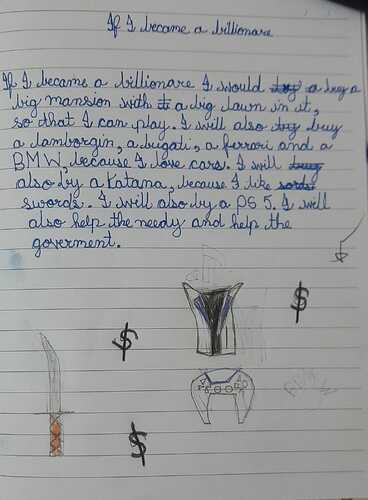 If I became a billionare
If I became a billionare I would buy a
big mansion with a big lawn in it,
so that I can play. I will also buy
a lamborgin, a bugati, a ferrari and a
BMW, because I love cars. I will
also by a Katana, because I like
swords. I will also by a PS 5. I will
also help the needy and help the
goverment.
$
$
$